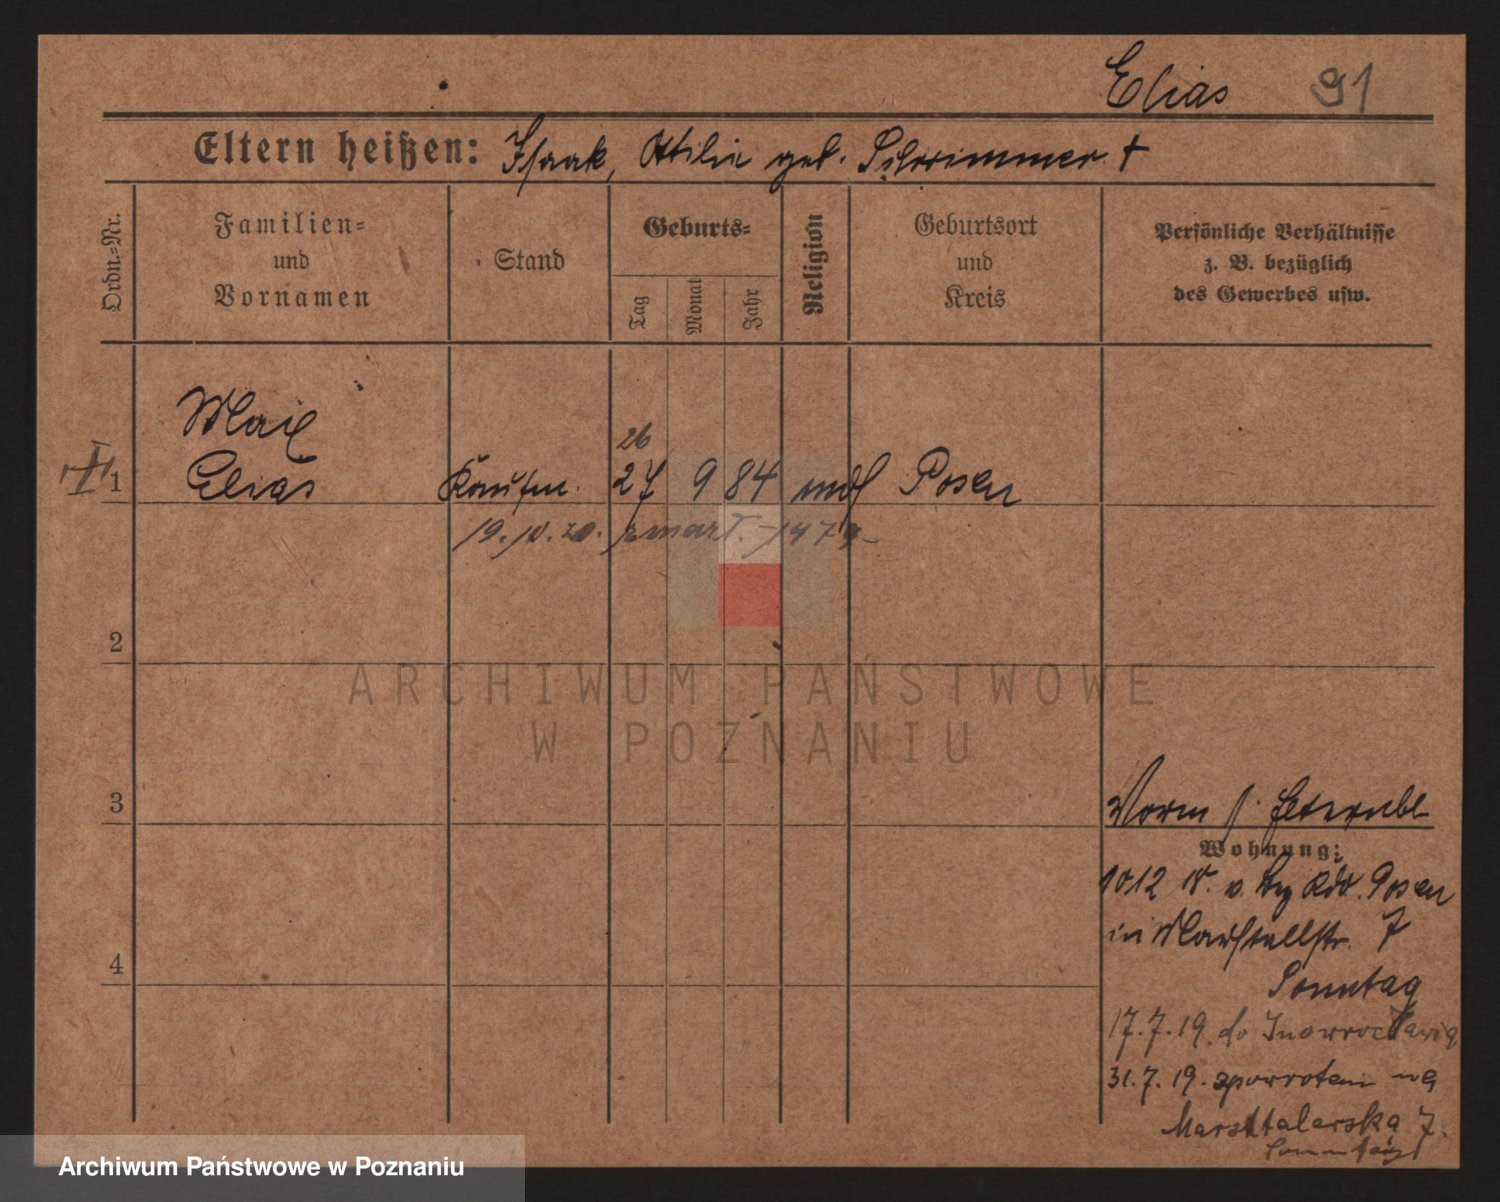 Elias 91
Eltern heißen: Isaak, Ottilie geb. †
Ordn.=Nr.
Familien=
und
Vornamen
Stand
Geburts=
Tag
Monat
Jahr
Religion
Geburtsort
und
Kreis
Persönliche Verhältnisse
z. B. bezüglich
des Gewerbes usw.
Max
26
1 Elias Kaufm. 27 9 84 mos Posen
19. 10. 20. zmarł.
2
ARCHIWUM PAŃSTWOWE
W POZNANIU
3
Wohnung:
1012 v. Posen
in Marstallstr. 7
4
Sonntag
17.7.19. do Inowrocławia
31.7.19. zpowrotem na
Marsztalarska 7.
Archiwum Państwowe w Poznaniu